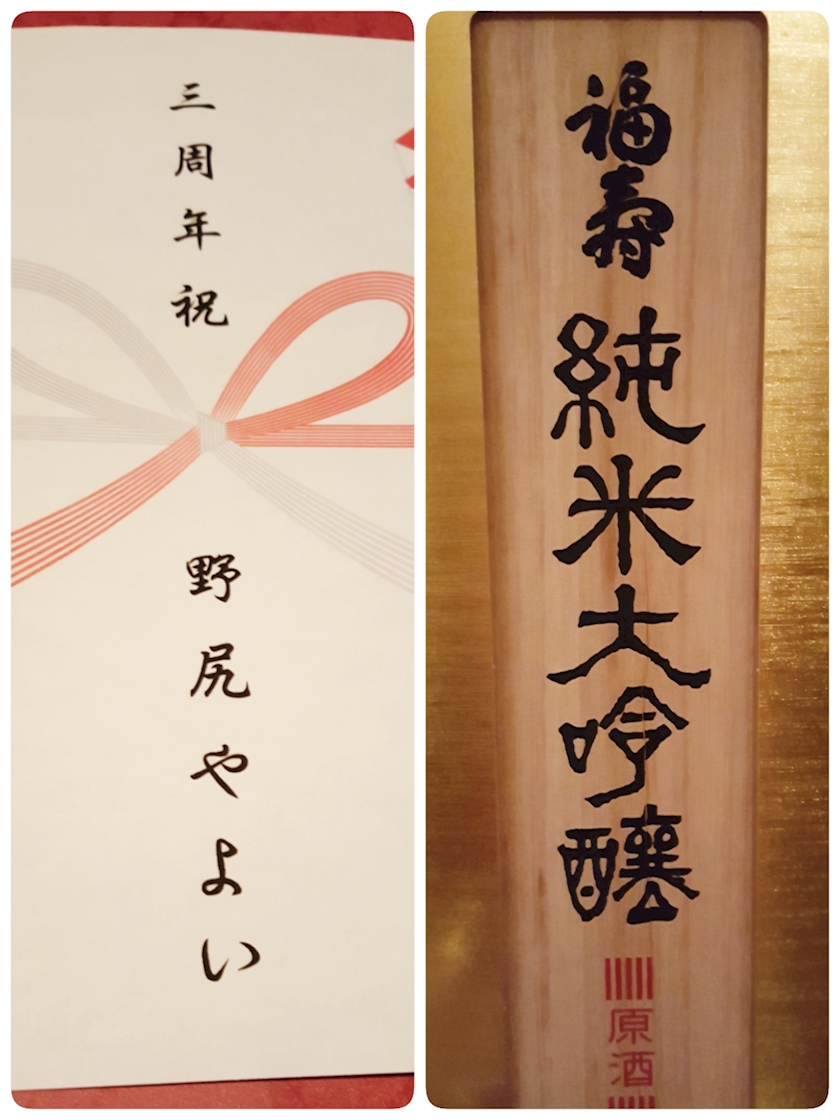 三周年祝
野尻やよい
福寿
純米大吟醸
原酒